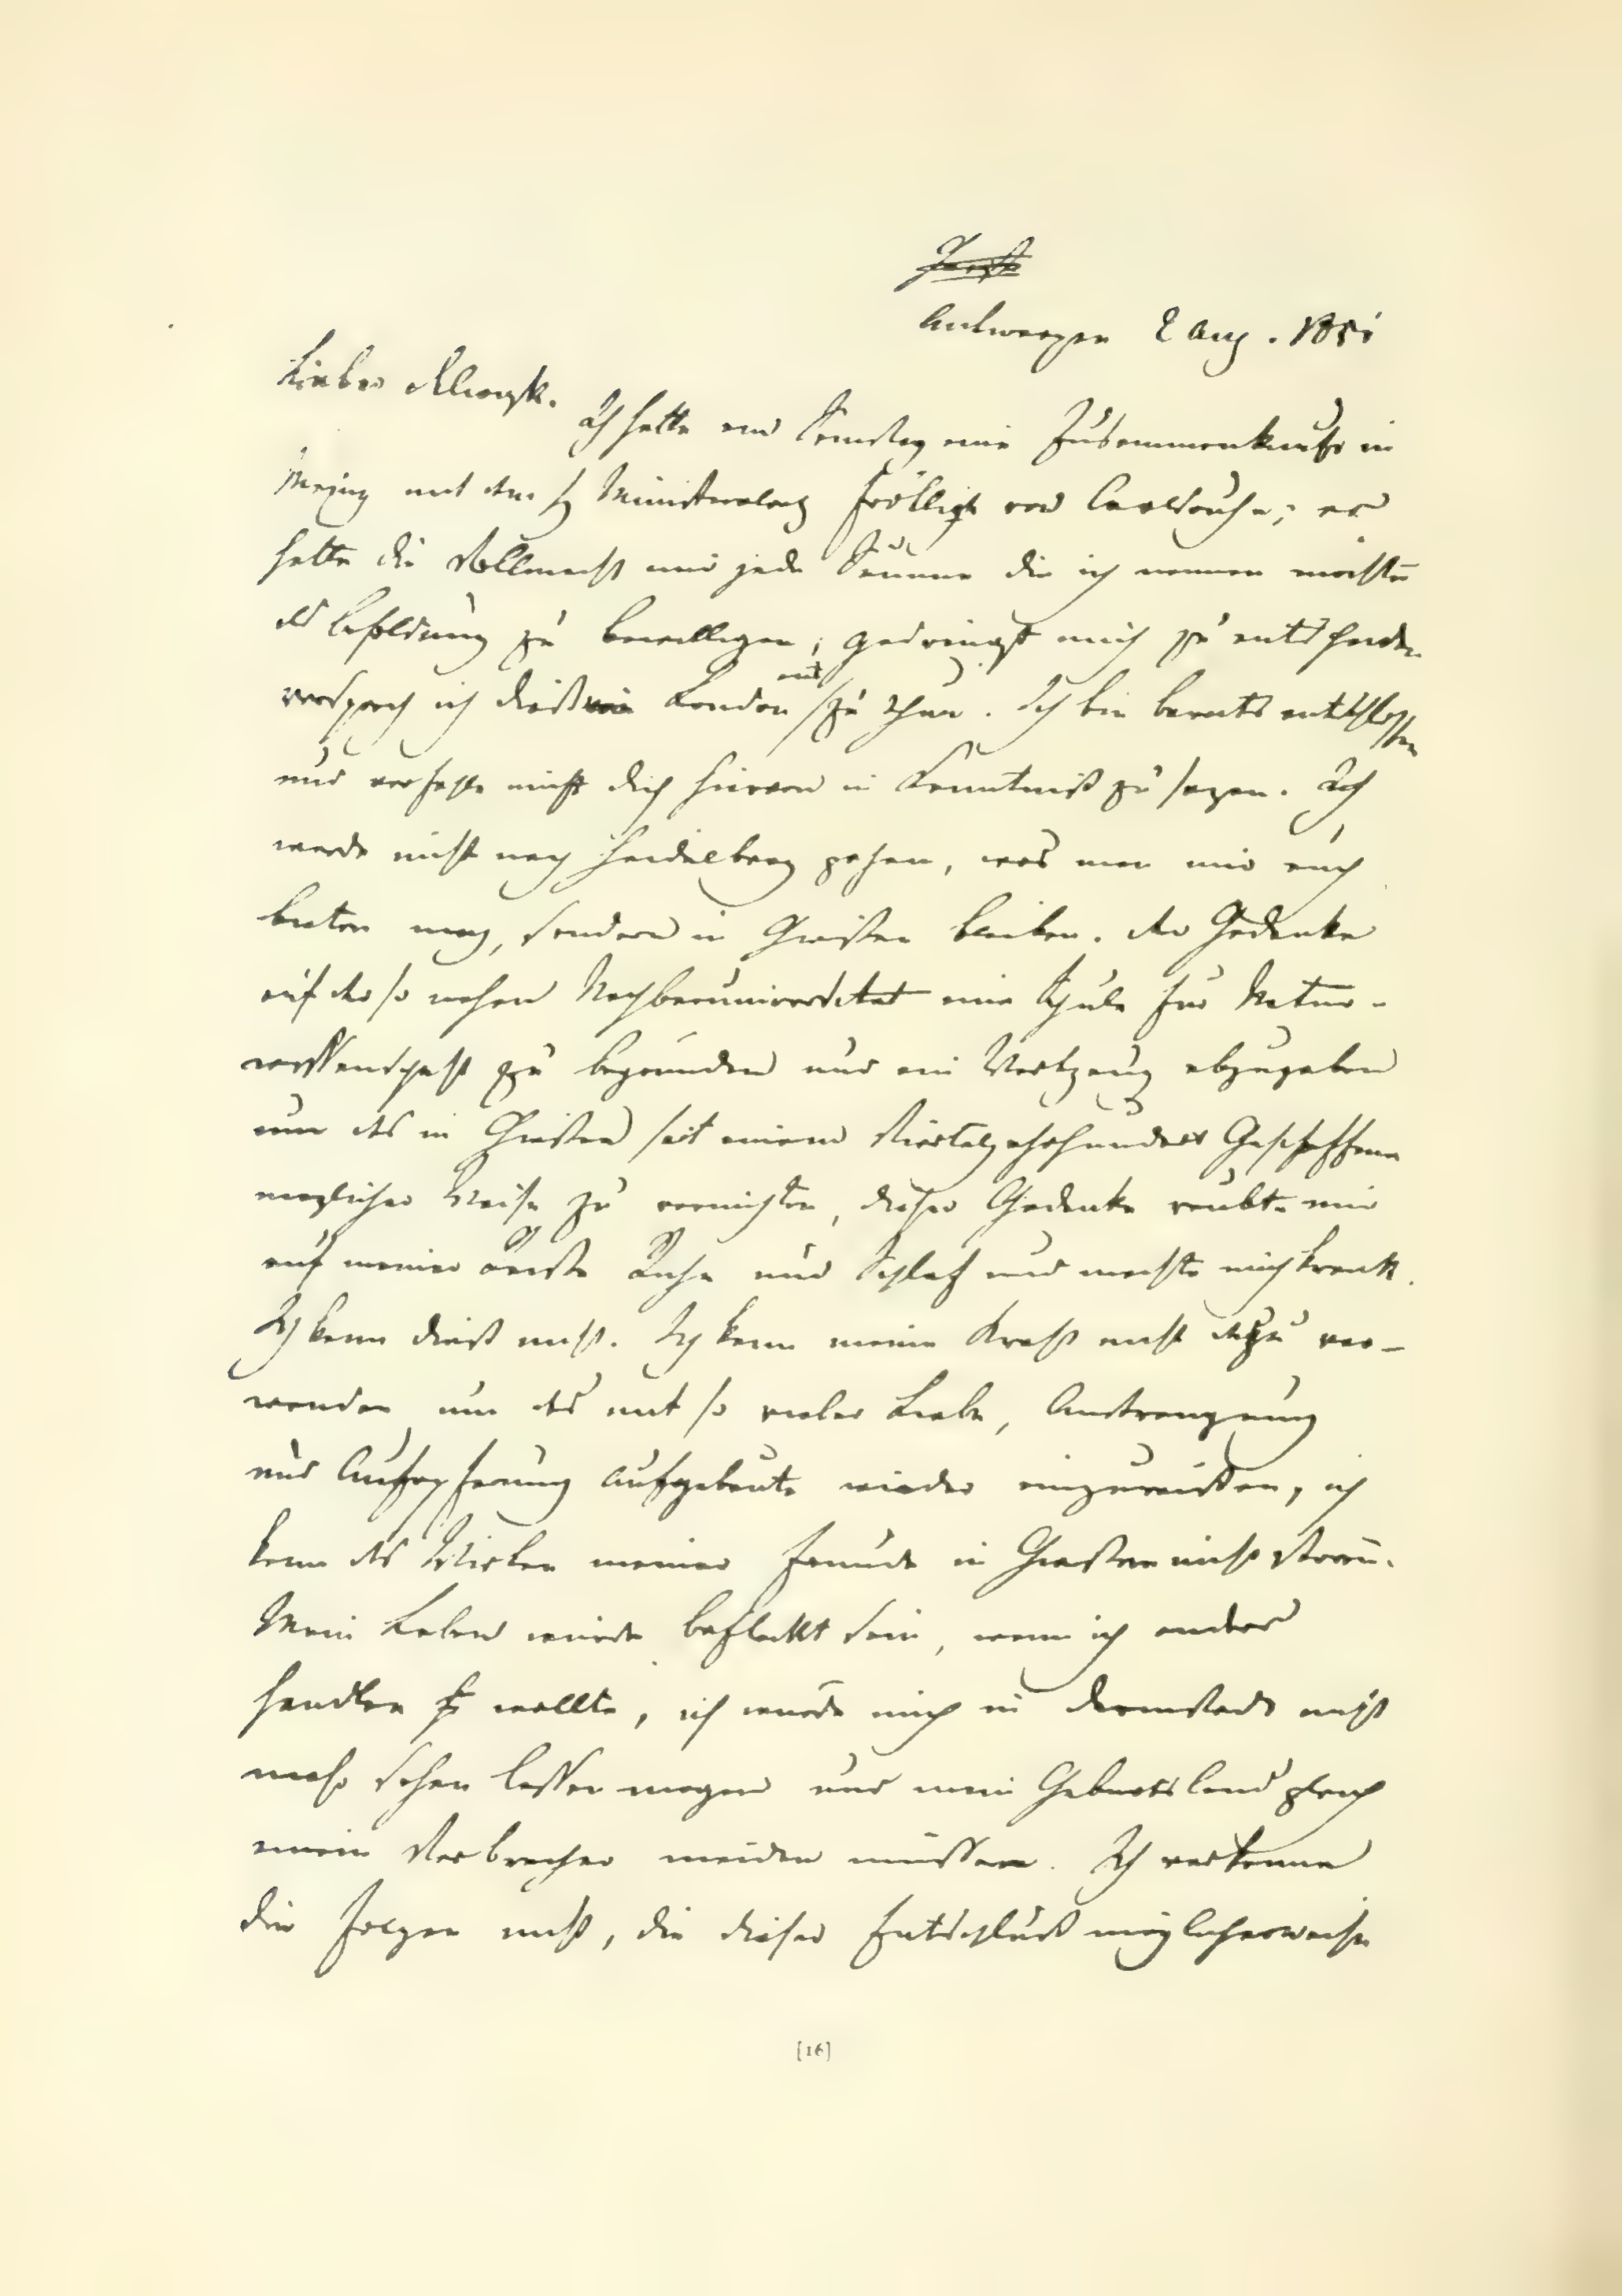 Antwerpen 2 Aug. 1851
Lieber
Ich hatte am Samstag eine Zusammenkunft in
Mainz mit dem H Ministerialrath Fröhlich von Carlsruhe; er
hatte die Vollmacht mir jede Summe die ich nennen möchte
als Besoldung zu bewilligen; gedrängt mich zu entscheiden
versprach ich dieß aus London zu thun. Ich bin bereits entschlossen
und verfehle nicht dich hiervon in Kenntniß zu setzen. Ich
werde nicht nach Heidelberg gehen, was man mir auch
bieten mag, sondern in Giessen bleiben. Der Gedanke
auf der so nahen Nachbaruniversitat eine Schule fur Natur-
wissenschaft zu begrunden und ein Werkzeug abzugeben
um das in Giessen seit einem Vierteljahrhundert Geschaffene
moglicher Weise zu vernichten, dieser Gedanke raubte mir
auf meiner Reise Ruhe und Schlaf und machte mich krank.
Ich kann dieß nicht. Ich kann meine Kraft nicht dazu ver-
wenden um das mit so vieler Liebe, Anstrengung
und Aufopferung aufgebaute wieder einzureissen, ich
kann das Wirken meiner Freunde in Giessen nicht storen.
Mein Leben wurde befleckt sein, wenn ich anders
handlen wollte, ich wurde mich in Darmstadt nicht
mehr sehen lassen mogen und mein Geburtsland gleich
einem Verbrecher meiden müssen. Ich verkenne
die Folgen nicht, die dieser Entschluß möglicherweise
[16]